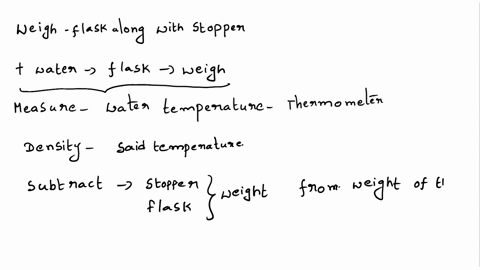 Weigh - flask along with stopper
+ water → flask → weigh
Measure - water temperature - Thermometer
Density - Said temperature
Subtract → Stopper } weight from weight of
flask